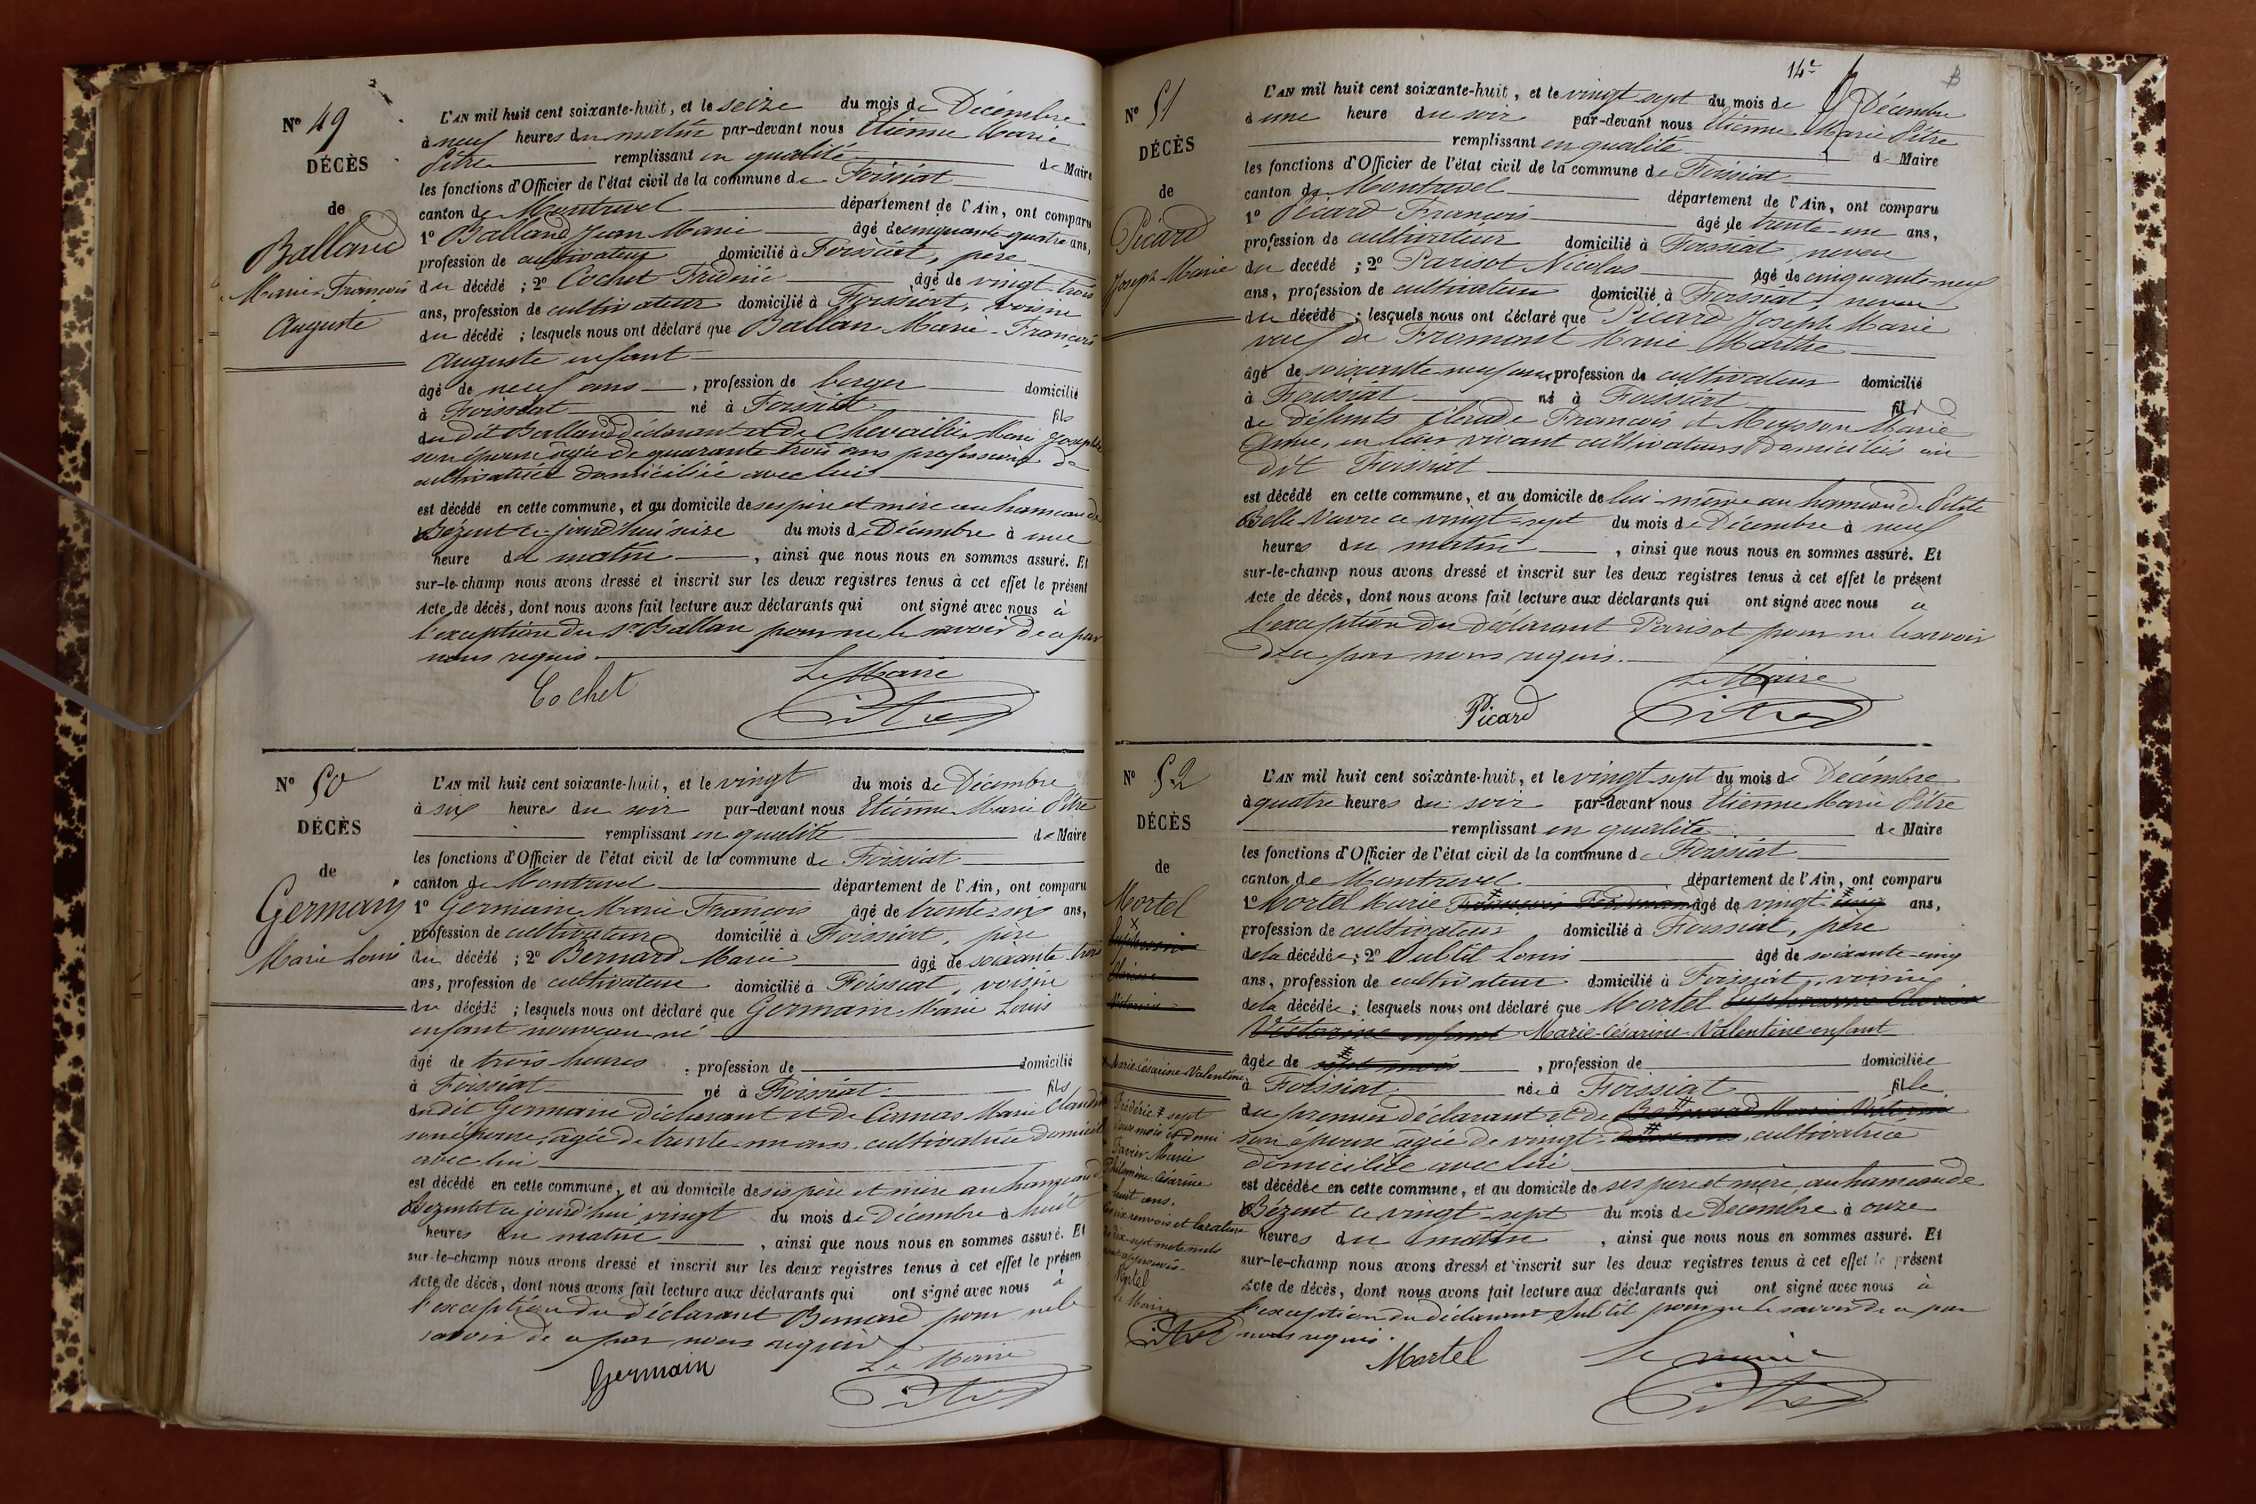 Nº 49
DÉCÈS
de
Balland
Marie-François
Auguste
L'AN mil huit cent soixante-huit, et le seize du mois de Décembre
à neuf heures du matin par-devant nous Etienne Marie
Pitre remplissant en qualité de Maire
les fonctions d'Officier de l'état civil de la commune de Foissiat
canton de Montrevel département de l'Ain, ont comparu
1º Balland Jean Marie âgé de cinquante quatre ans,
profession de cultivateur domicilié à Foissiat, père
du décédé ; 2º Cochet Frédéric âgé de vingt-trois
ans, profession de cultivateur domicilié à Foissiat, voisin
du décédé ; lesquels nous ont déclaré que Ballan Marie-François
Auguste enfant
âgé de neuf ans, profession de berger domicilié
à Foissiat né à Foissiat fils
du dit Balland déclarant et de Chevailler Marie Josephte
son épouse âgée de quarante trois ans profession de
cultivatrice domiciliée avec lui
est décédé en cette commune, et au domicile de ses père et mère au hameau de
Bézent ce jourd'hui seize du mois de Décembre à une
heure du matin, ainsi que nous nous en sommes assuré. Et
sur-le-champ nous avons dressé et inscrit sur les deux registres tenus à cet effet le présent
Acte de décès, dont nous avons fait lecture aux déclarants qui ont signé avec nous à
l'exception du Sr Ballan pour ne le savoir de ce par
nous requis.
Le Maire
Cochet
Pitre
Nº 50
DÉCÈS
de
Germain
Marie Louis
L'AN mil huit cent soixante-huit, et le vingt du mois de Décembre
à six heures du soir par-devant nous Etienne Marie Pitre
remplissant en qualité de Maire
les fonctions d'Officier de l'état civil de la commune de Foissiat
canton de Montrevel département de l'Ain, ont comparu
1º Germain Marie François âgé de trente-six ans,
profession de cultivateur domicilié à Foissiat, père
du décédé ; 2º Bernard Marie âgé de soixante-trois
ans, profession de cultivateur domicilié à Foissiat, voisin
du décédé ; lesquels nous ont déclaré que Germain Marie Louis
enfant nouveau né
âgé de trois heures, profession de domicilié
à Foissiat né à Foissiat fils
du dit Germain déclarant et de Marie Claudine
son épouse, âgée de trente-un ans cultivatrice domiciliée
avec lui
est décédé en cette commune, et au domicile de ses père et mère au hameau de
Bézentet ce jourd'hui vingt du mois de Décembre à huit
heures du matin, ainsi que nous nous en sommes assuré. Et
sur-le-champ nous avons dressé et inscrit sur les deux registres tenus à cet effet le présen
Acte de décès, dont nous avons fait lecture aux déclarants qui ont signé avec nous à
l'exception du déclarant Bernard pour ne le
savoir de ce par nous requis
Le Maire
Germain
Pitre
14e
Nº 51
DÉCÈS
de
Picard
Joseph-Marie
L'AN mil huit cent soixante-huit, et le vingt sept du mois de Décembre
à une heure du soir par-devant nous Etienne Marie Pitre
remplissant en qualité de Maire
les fonctions d'Officier de l'état civil de la commune de Foissiat
canton de Montrevel département de l'Ain, ont comparu
1º Picard François âgé de trente-un ans,
profession de cultivateur domicilié à Foissiat, neveu
du décédé ; 2º Parisot Nicolas âgé de cinquante-neuf
ans, profession de cultivateur domicilié à Foissiat, neveu
du décédé ; lesquels nous ont déclaré que Picard Joseph Marie
veuf de Fromont Marie Marthe
âgé de soixante-neuf ans, profession de cultivateur domicilié
à Foissiat né à Foissiat fils
de défunts Claude François et Moysson Marie
Anne, en leur vivant cultivateurs domiciliés au
dit Foissiat
est décédé en cette commune, et au domicile de lui-même au hameau de Petite
Belle Vavre ce vingt-sept du mois de Décembre à neuf
heures du matin, ainsi que nous nous en sommes assuré. Et
sur-le-champ nous avons dressé et inscrit sur les deux registres tenus à cet effet le présent
Acte de décès, dont nous avons fait lecture aux déclarants qui ont signé avec nous à
l'exception du déclarant Parisot pour ne le savoir
de ce par nous requis.
Le Maire
Picard
Pitre
Nº 52
DÉCÈS
de
Mortel
Marie-Césarine-Valentine
Frédéric # sept
deux mois et demi
Favier Marie
Philomène Césarine
# huit ans.
renvois et la rature
de dix-sept mots nuls
approuvés.
Mortel
Le Maire
Pitre
L'AN mil huit cent soixante-huit, et le vingt-sept du mois de Décembre
à quatre heures du soir par-devant nous Etienne Marie Pitre
remplissant en qualité de Maire
les fonctions d'Officier de l'état civil de la commune de Foissiat
canton de Montrevel département de l'Ain, ont comparu
1º Mortel Marie François Ferdinand âgé de vingt-cinq ans,
profession de cultivateur domicilié à Foissiat, père
de la décédée ; 2º Subtil Louis âgé de soixante-cinq
ans, profession de cultivateur domicilié à Foissiat, voisin
de la décédée ; lesquels nous ont déclaré que Mortel
Victorine enfant Marie-Césarine-Valentine enfant
âgée de sept mois, profession de domiciliée
à Foissiat née à Foissiat fille
du premier déclarant et de
son épouse âgée de vingt-deux ans, cultivatrice
domiciliée avec lui
est décédée en cette commune, et au domicile de ses père et mère au hameau de
Bézent ce vingt-sept du mois de Décembre à onze
heures du matin, ainsi que nous nous en sommes assuré. Et
sur-le-champ nous avons dressé et inscrit sur les deux registres tenus à cet effet le présent
Acte de décès, dont nous avons fait lecture aux déclarants qui ont signé avec nous à
l'exception du déclarant Subtil pour ne le savoir de ce par
nous requis.
Mortel
Le maire
Pitre